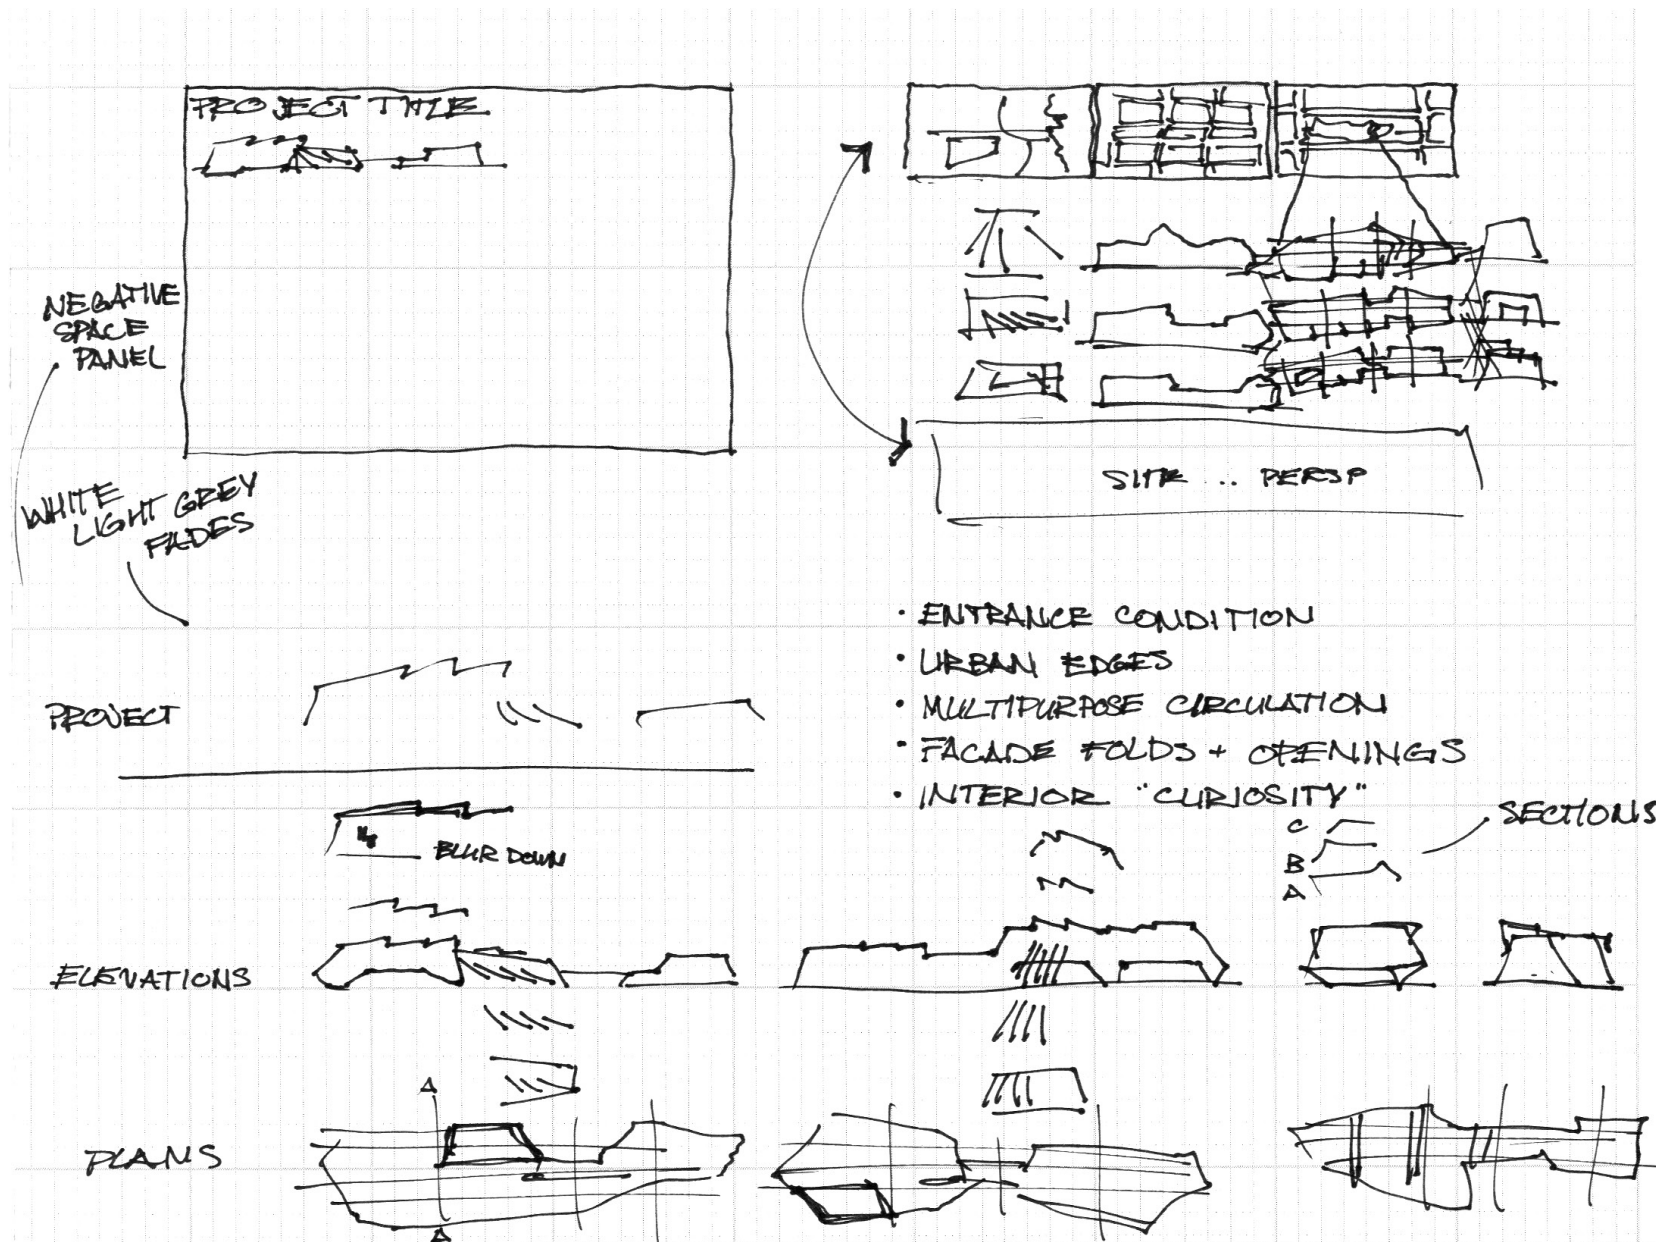 PROJECT TITLE
NEGATIVE
SPACE
PANEL
WHITE
LIGHT GREY
FADES
SITE .. PERSP
• ENTRANCE CONDITION
• URBAN EDGES
• MULTIPURPOSE CIRCULATION
• FACADE FOLDS + OPENINGS
• INTERIOR "CURIOSITY"
PROJECT
BLUR DOWN
C
B
A
SECTIONS
ELEVATIONS
A
PLANS
A